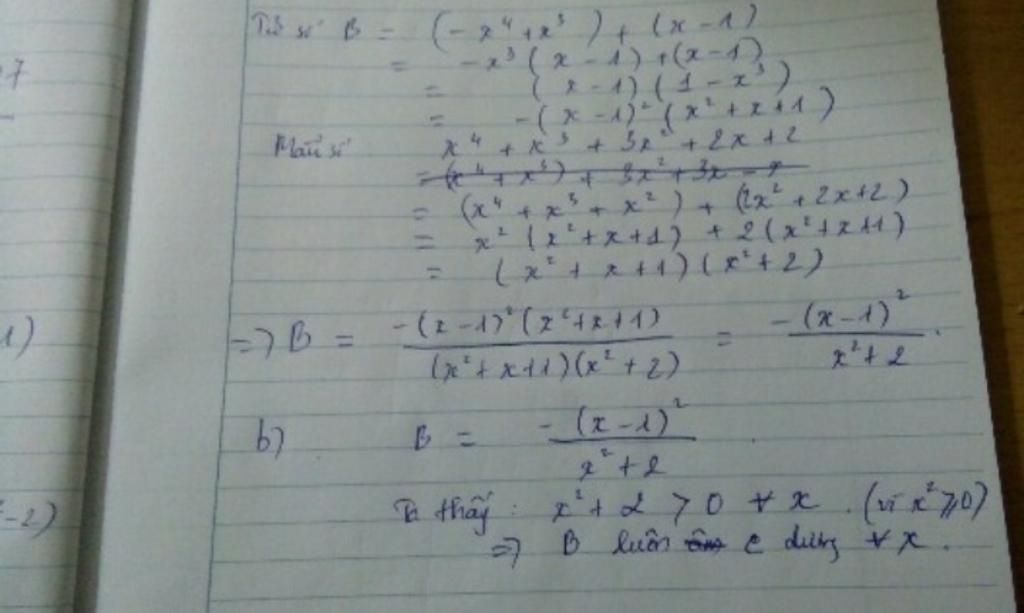 Tử số B = (-x⁴+x³) + (x-1)
= -x³(x-1)+(x-1)
= (x-1)(1-x³)
= -(x-1)²(x²+x+1)
Mẫu số x⁴+x³+3x²+2x+2
= (x⁴+x³)+3x²+3x-x
= (x⁴+x³+x²)+(2x²+2x+2)
= x²(x²+x+1)+2(x²+x+1)
= (x²+x+1)(x²+2)
=> B = -(x-1)²(x²+x+1) / (x²+x+1)(x²+2) = -(x-1)² / x²+2 .
b) B = -(x-1)² / x²+2
Ta thấy: x²+2 > 0 ∀x. (vì x²⩾0)
=> B luôn âm c dương ∀x.
7
1)
-2)